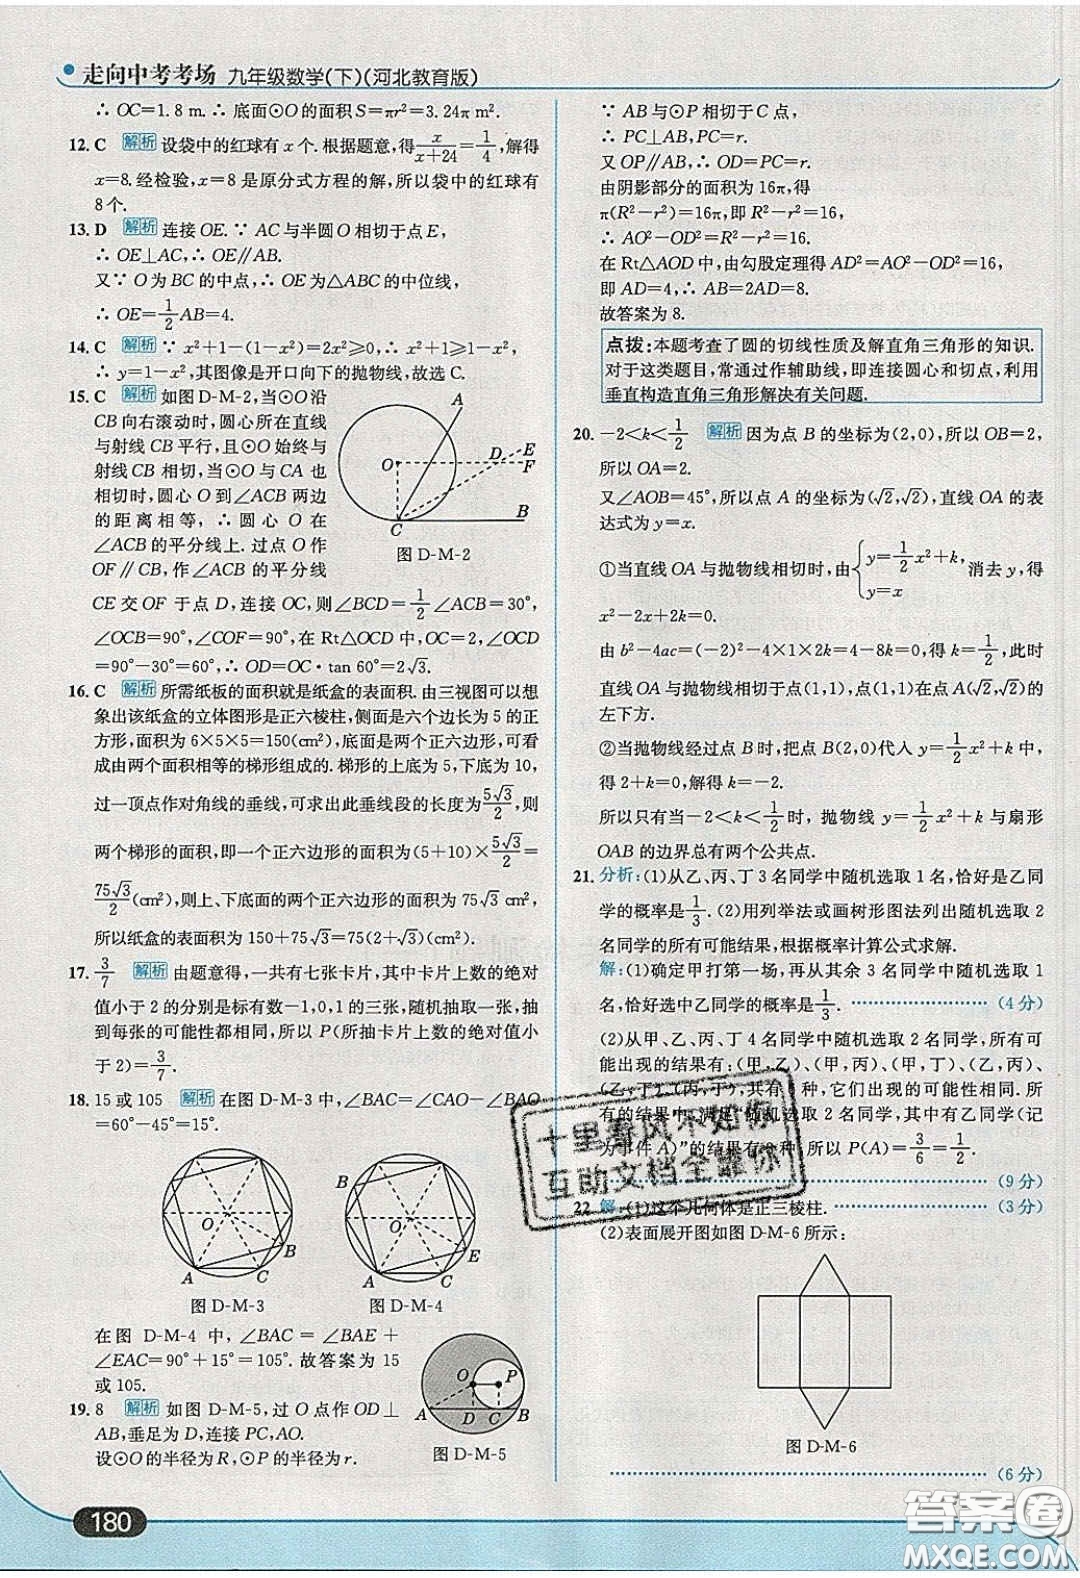 走向中考考场 九年级数学(下)(河北教育版)
∴ OC=1.8 m.∴ 底面⊙O的面积 S=πr²=3.24π m².
12. C 解析 设袋中的红球有 x 个.根据题意,得x/(x+24)=1/4,解得
x=8.经检验,x=8 是原分式方程的解,所以袋中的红球有
8个.
13. D 解析 连接OE.∵ AC与半圆O相切于点E,
∴ OE⊥AC,∴ OE∥AB.
又∵ O为BC的中点,∴ OE为△ABC的中位线,
∴ OE=1/2AB=4.
14. C 解析 ∵ x²+1-(1-x²)=2x²≥0,∴ x²+1≥1-x²,
∴ y=1-x²,其图像是开口向下的抛物线,故选C.
15. C 解析 如图D-M-2,当⊙O沿
CB向右滚动时,圆心所在直线
与射线CB平行,且⊙O始终与
射线CB相切,当⊙O与CA也
相切时,圆心O到∠ACB两边
的距离相等,∴ 圆心O在
∠ACB的平分线上.过点O作
OF∥CB,作∠ACB的平分线
A
O
D
E
F
C
B
图D-M-2
CE交OF于点D,连接OC,则∠BCD=1/2∠ACB=30°,
∠OCB=90°,∠COF=90°,在Rt△OCD中,OC=2,∠OCD
=90°-30°=60°,∴ OD=OC·tan 60°=2√3.
16. C 解析 所需纸板的面积就是纸盒的表面积.由三视图可以想
象出该纸盒的立体图形是正六棱柱,侧面是六个边长为5的正
方形,面积为6×5×5=150(cm²),底面是两个正六边形,可看
成由两个面积相等的梯形组成的.梯形的上底为5,下底为10,
过一顶点作对角线的垂线,可求出此垂线段的长度为5√3/2,则
两个梯形的面积,即一个正六边形的面积为(5+10)×5√3/2=
75√3/2(cm²),所以上、下底面的两个正六边形的面积为75√3 cm²,
所以纸盒的表面积为150+75√3=75(2+√3)(cm²).
17. 3/7 解析 由题意得,一共有七张卡片,其中卡片上数的绝对
值小于2的分别是标有数-1,0,1的三张,随机抽取一张,
抽到每张的可能性都相同,所以P(所抽卡片上数的绝对值小
于2)=3/7.
18. 15或105 解析 在图D-M-3中,∠BAC=∠CAO-∠BAO
=60°-45°=15°.
O
B
A
C
图D-M-3
B
O
E
A
C
图D-M-4
在图 D-M-4 中,∠BAC=∠BAE+
∠EAC=90°+15°=105°.故答案为15
或105.
19. 8 解析 如图D-M-5,过O点作OD⊥
AB,垂足为D,连接PC,AO.
设⊙O的半径为R,⊙P的半径为r.
O
P
A
D
C
B
图D-M-5
∵ AB与⊙P相切于C点,
∴ PC⊥AB,PC=r.
又OP∥AB,∴ OD=PC=r.
由阴影部分的面积为16π,得
π(R²-r²)=16π,即R²-r²=16,
∴ AO²-OD²=R²-r²=16.
在Rt△AOD中,由勾股定理得AD²=AO²-OD²=16,
即AD=4,∴ AB=2AD=8.
故答案为8.
点拨:本题考查了圆的切线性质及解直角三角形的知识.
对于这类题目,常通过作辅助线,即连接圆心和切点,利用
垂直构造直角三角形解决有关问题.
20. -2<k<1/2 解析 因为点B的坐标为(2,0),所以OB=2,
所以OA=2.
又∠AOB=45°,所以点A的坐标为(√2,√2),直线OA的表
达式为y=x.
①当直线OA与抛物线相切时,由{y=1/2x²+k, y=x 消去y,得
x²-2x+2k=0.
由b²-4ac=(-2)²-4×1×2k=4-8k=0,得k=1/2,此时
直线OA与抛物线切于点(1,1),点(1,1)在点A(√2,√2)的
左下方.
②当抛物线经过点B时,把点B(2,0)代入y=1/2x²+k中,
得2+k=0,解得k=-2.
所以只有当-2<k<1/2时,抛物线y=1/2x²+k与扇形
OAB的边界总有两个公共点.
21. 分析:(1)从乙、丙、丁3名同学中随机选取1名,恰好是乙同
学的概率是1/3.(2)用列举法或画树形图法列出随机选取2
名同学的所有可能结果,根据概率计算公式求解.
解:(1)确定甲打第一场,再从其余3名同学中随机选取1
名,恰好选中乙同学的概率是1/3. (4分)
(2)从甲、乙、丙、丁4名同学中随机选取2名同学,所有可
能出现的结果有:(甲,乙)、(甲,丙)、(甲,丁)、(乙,丙)、
(乙,丁)、(丙,丁),共有6种,它们出现的可能性相同.所
有的结果中,满足“随机选取2名同学,其中有乙同学(记
为事件A)”的结果有3种,所以P(A)=3/6=1/2.
(9分)
22. 解:(1)这个几何体是正三棱柱. (3分)
(2)表面展开图如图D-M-6所示:
图D-M-6
(6分)
十里春风不如你
互动文档全靠你
180
答案圈
MXQE.COM